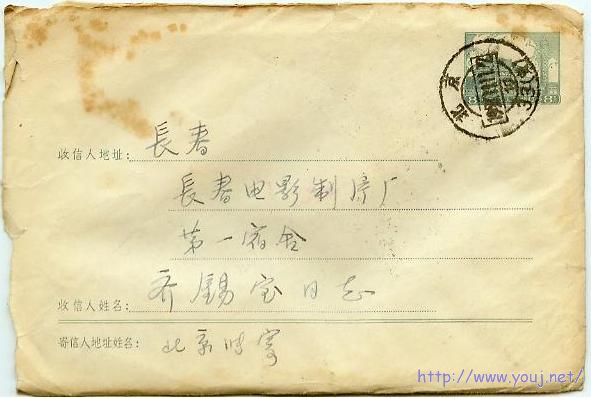 北京
8
8
收信人地址： 長春
長春电影制片厂
第一宿舍
收信人姓名： 齐锡宝同志
寄信人地址姓名： 北京
http://www.youj.net/